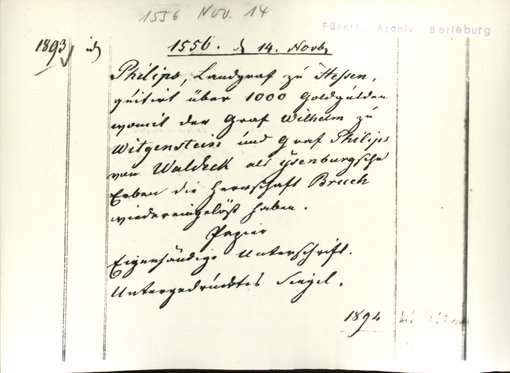 1556 NOV. 14
Fürstl. Archiv Berleburg
1893
1556. d 14. Novb.
Philips, Landgraf zu Hessen,
quitirt über 1000 Goldgulden
womit der Graf Wilhelm zu
Witgenstein und Graf Philips
von Waldeck als Ysenburgsche
Erben die Herrschaft Bruch
wiedereingelößt haben.
Papier
Eigenhändige Unterschrift.
Untergedrücktes Siegel.
1894